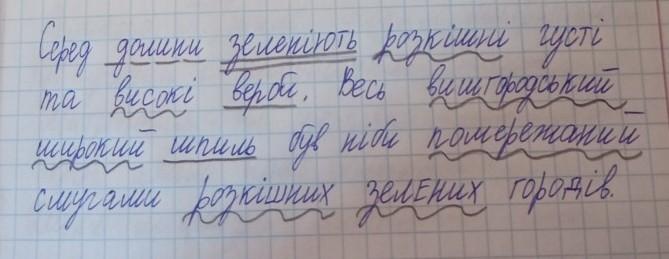 Серед долини зеленіють розкішні густі
та високі верби. Весь вишгородський
широкий шпиль був ніби помережаний
смугами розкішних зелЕних городів.